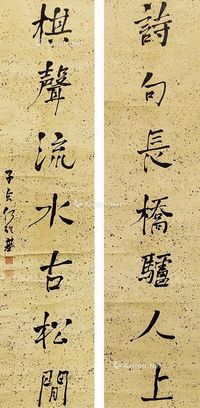 詩句長橋驢人上
棋聲流水古松間
子貞何紹基